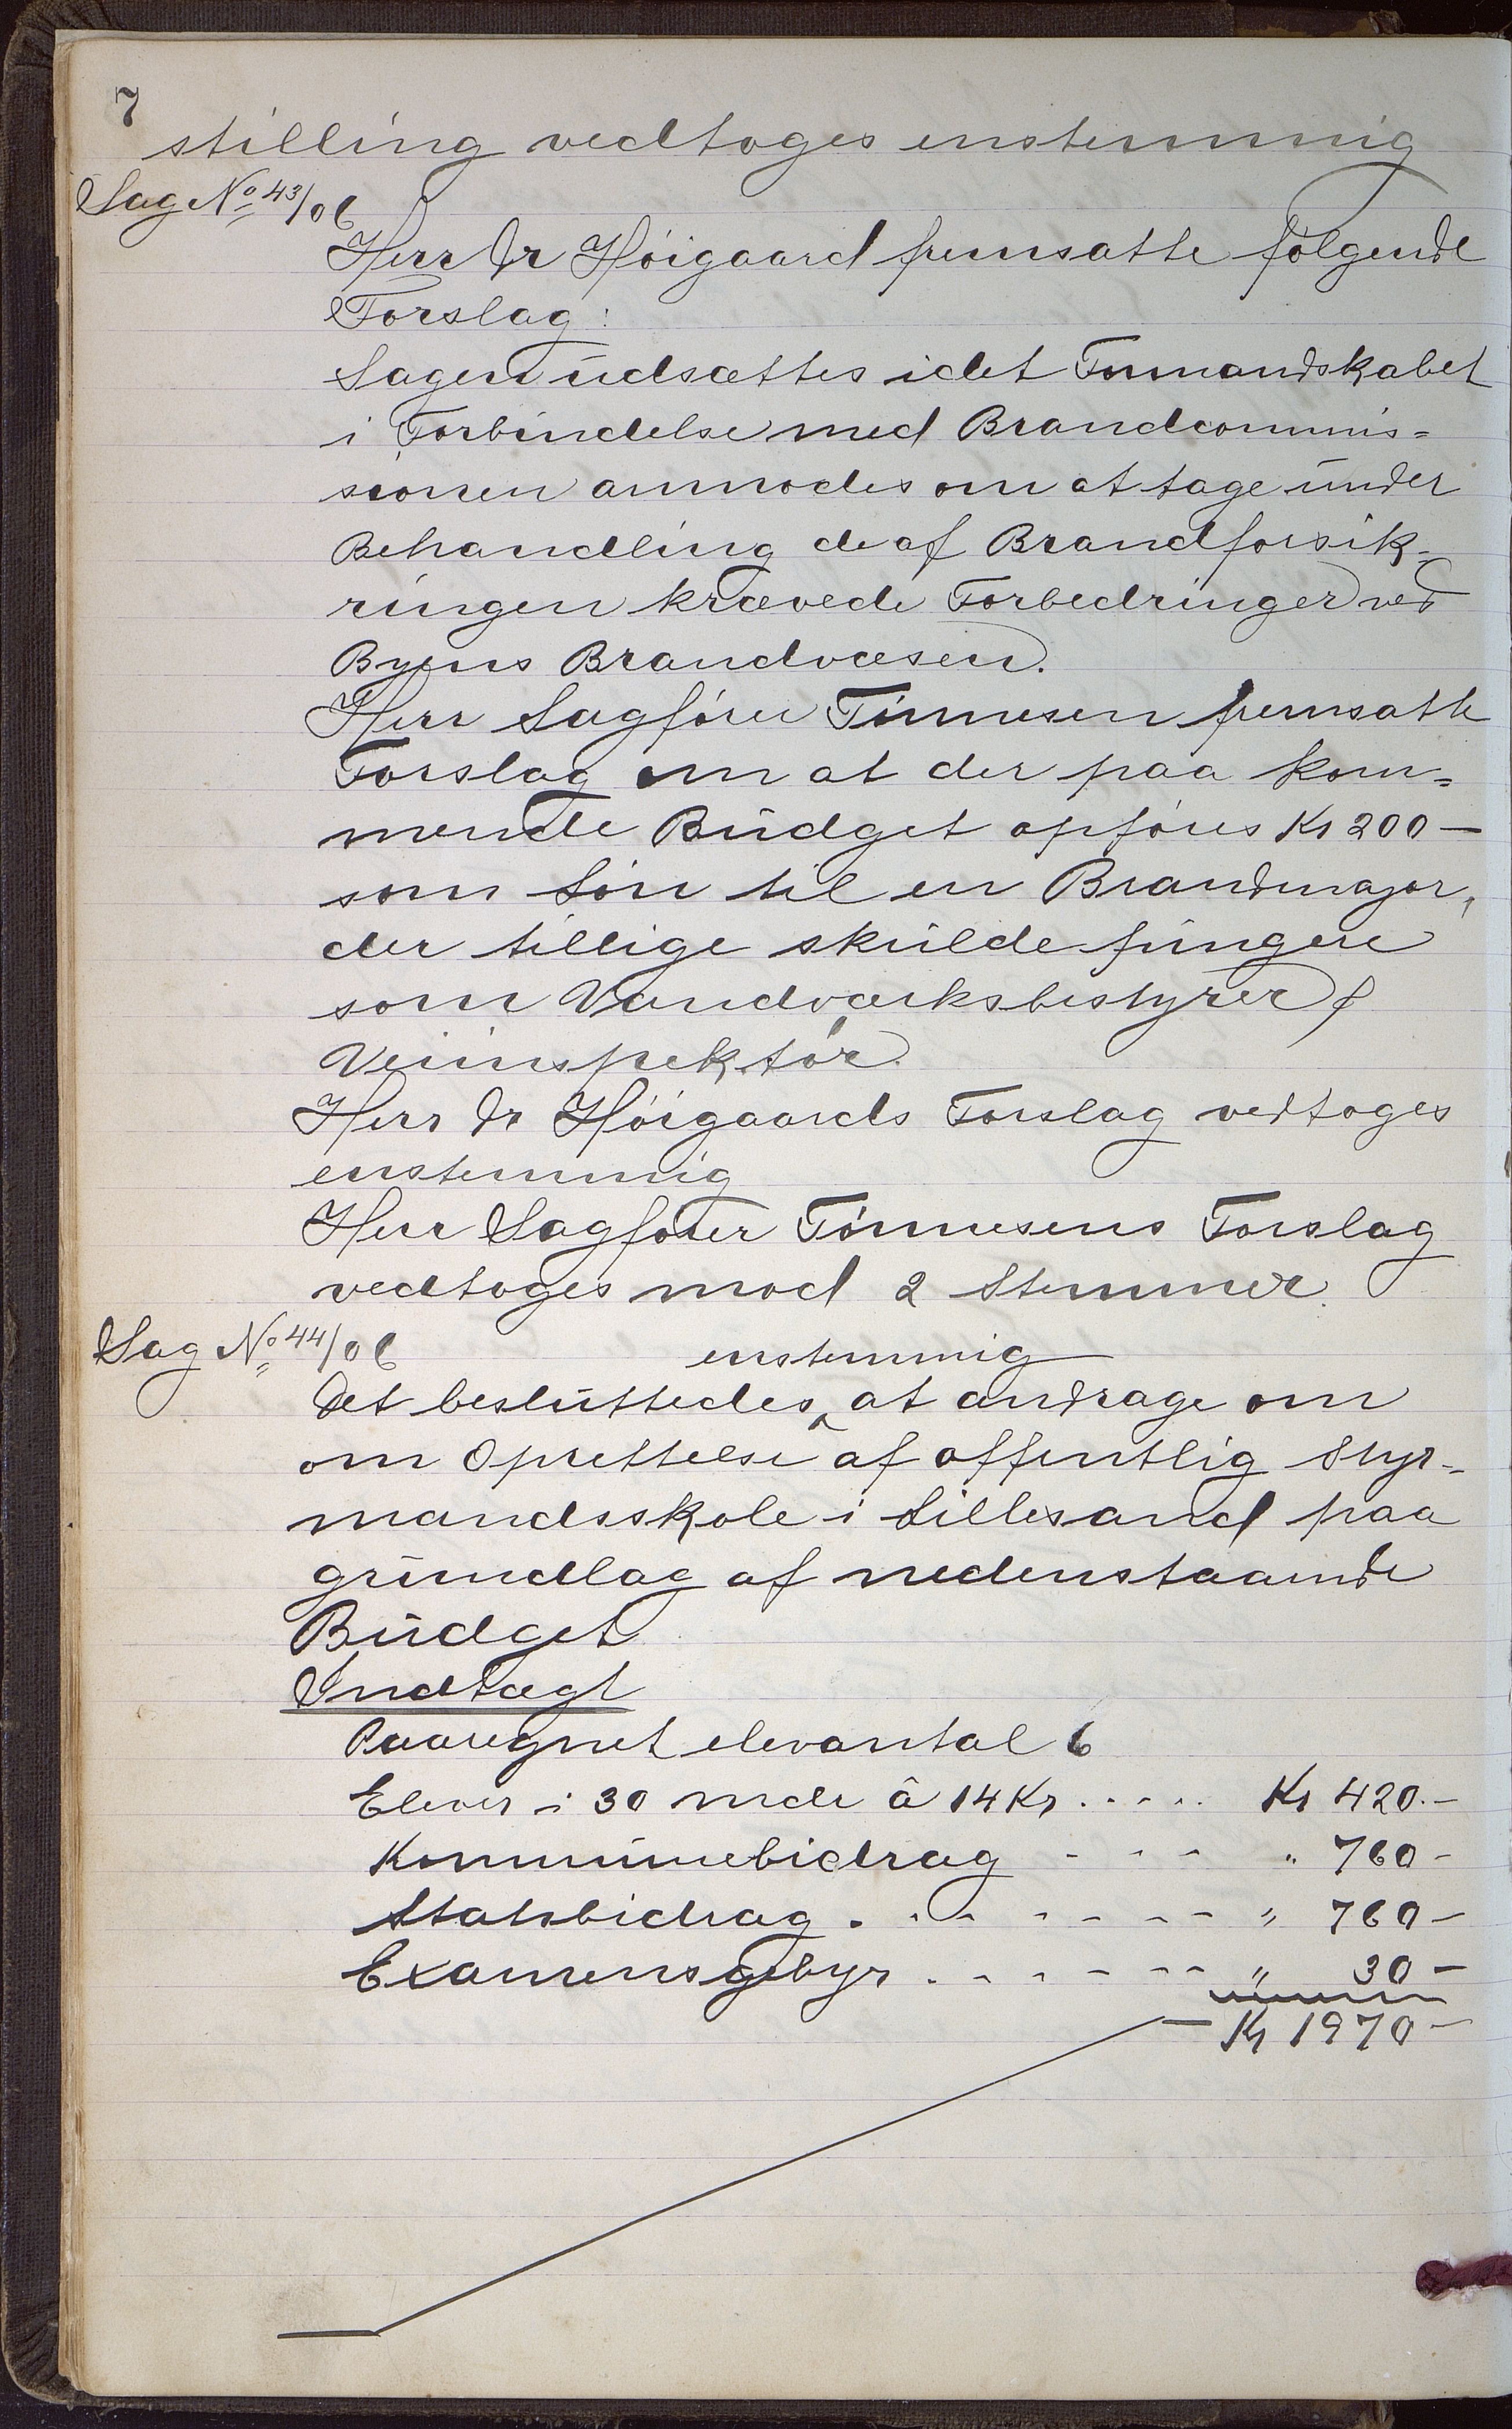 7
stilling vedtoges enstemmig
Sag No 43/06
Herr Dr Höigaard fremsatte følgende
Forslag:
Sagen udsættes idet Formandskabet
i Forbindelse med Brandcommis=
sionen anmodes om at tage under
Behandling de af Brandforsik-
ringen krævede Forbedringer ved
Byens Brandvæsen.
Herr Sagfører Tönnesen fremsatte
Forslag om at der paa kom=
mende Budget opføres Kr 200 —
som Lön til en Brandmajor,
der tillige skulde fungere
som Vandværksbestyrer &
Veiinspektör.
Herr Dr Höigaards Forslag vedtoges
enstemmig
Herr Sagfører Tönnesens Forslag
vedtoges mod 2 Stemmer.
Sag No 44/06
enstemmig
Det besluttedes at andrage om
om Oprettelse af offentlig Styr-
mandsskole i Lillesand paa
grundlag af nedenstaaende
Budget
Indtægt
Paaregnet elevantal 6
Elever i 30 mdr à 14 Kr ..... Kr 420.-
Kommunebidrag - - - " 760 -
Statsbidrag . - - - - - - - " 760 -
Examensgebyr . - - - - - - " 30 -
Kr 1970 -